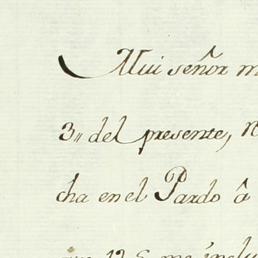 Mui señor m
3,, del presente,
cha en el Pardo â